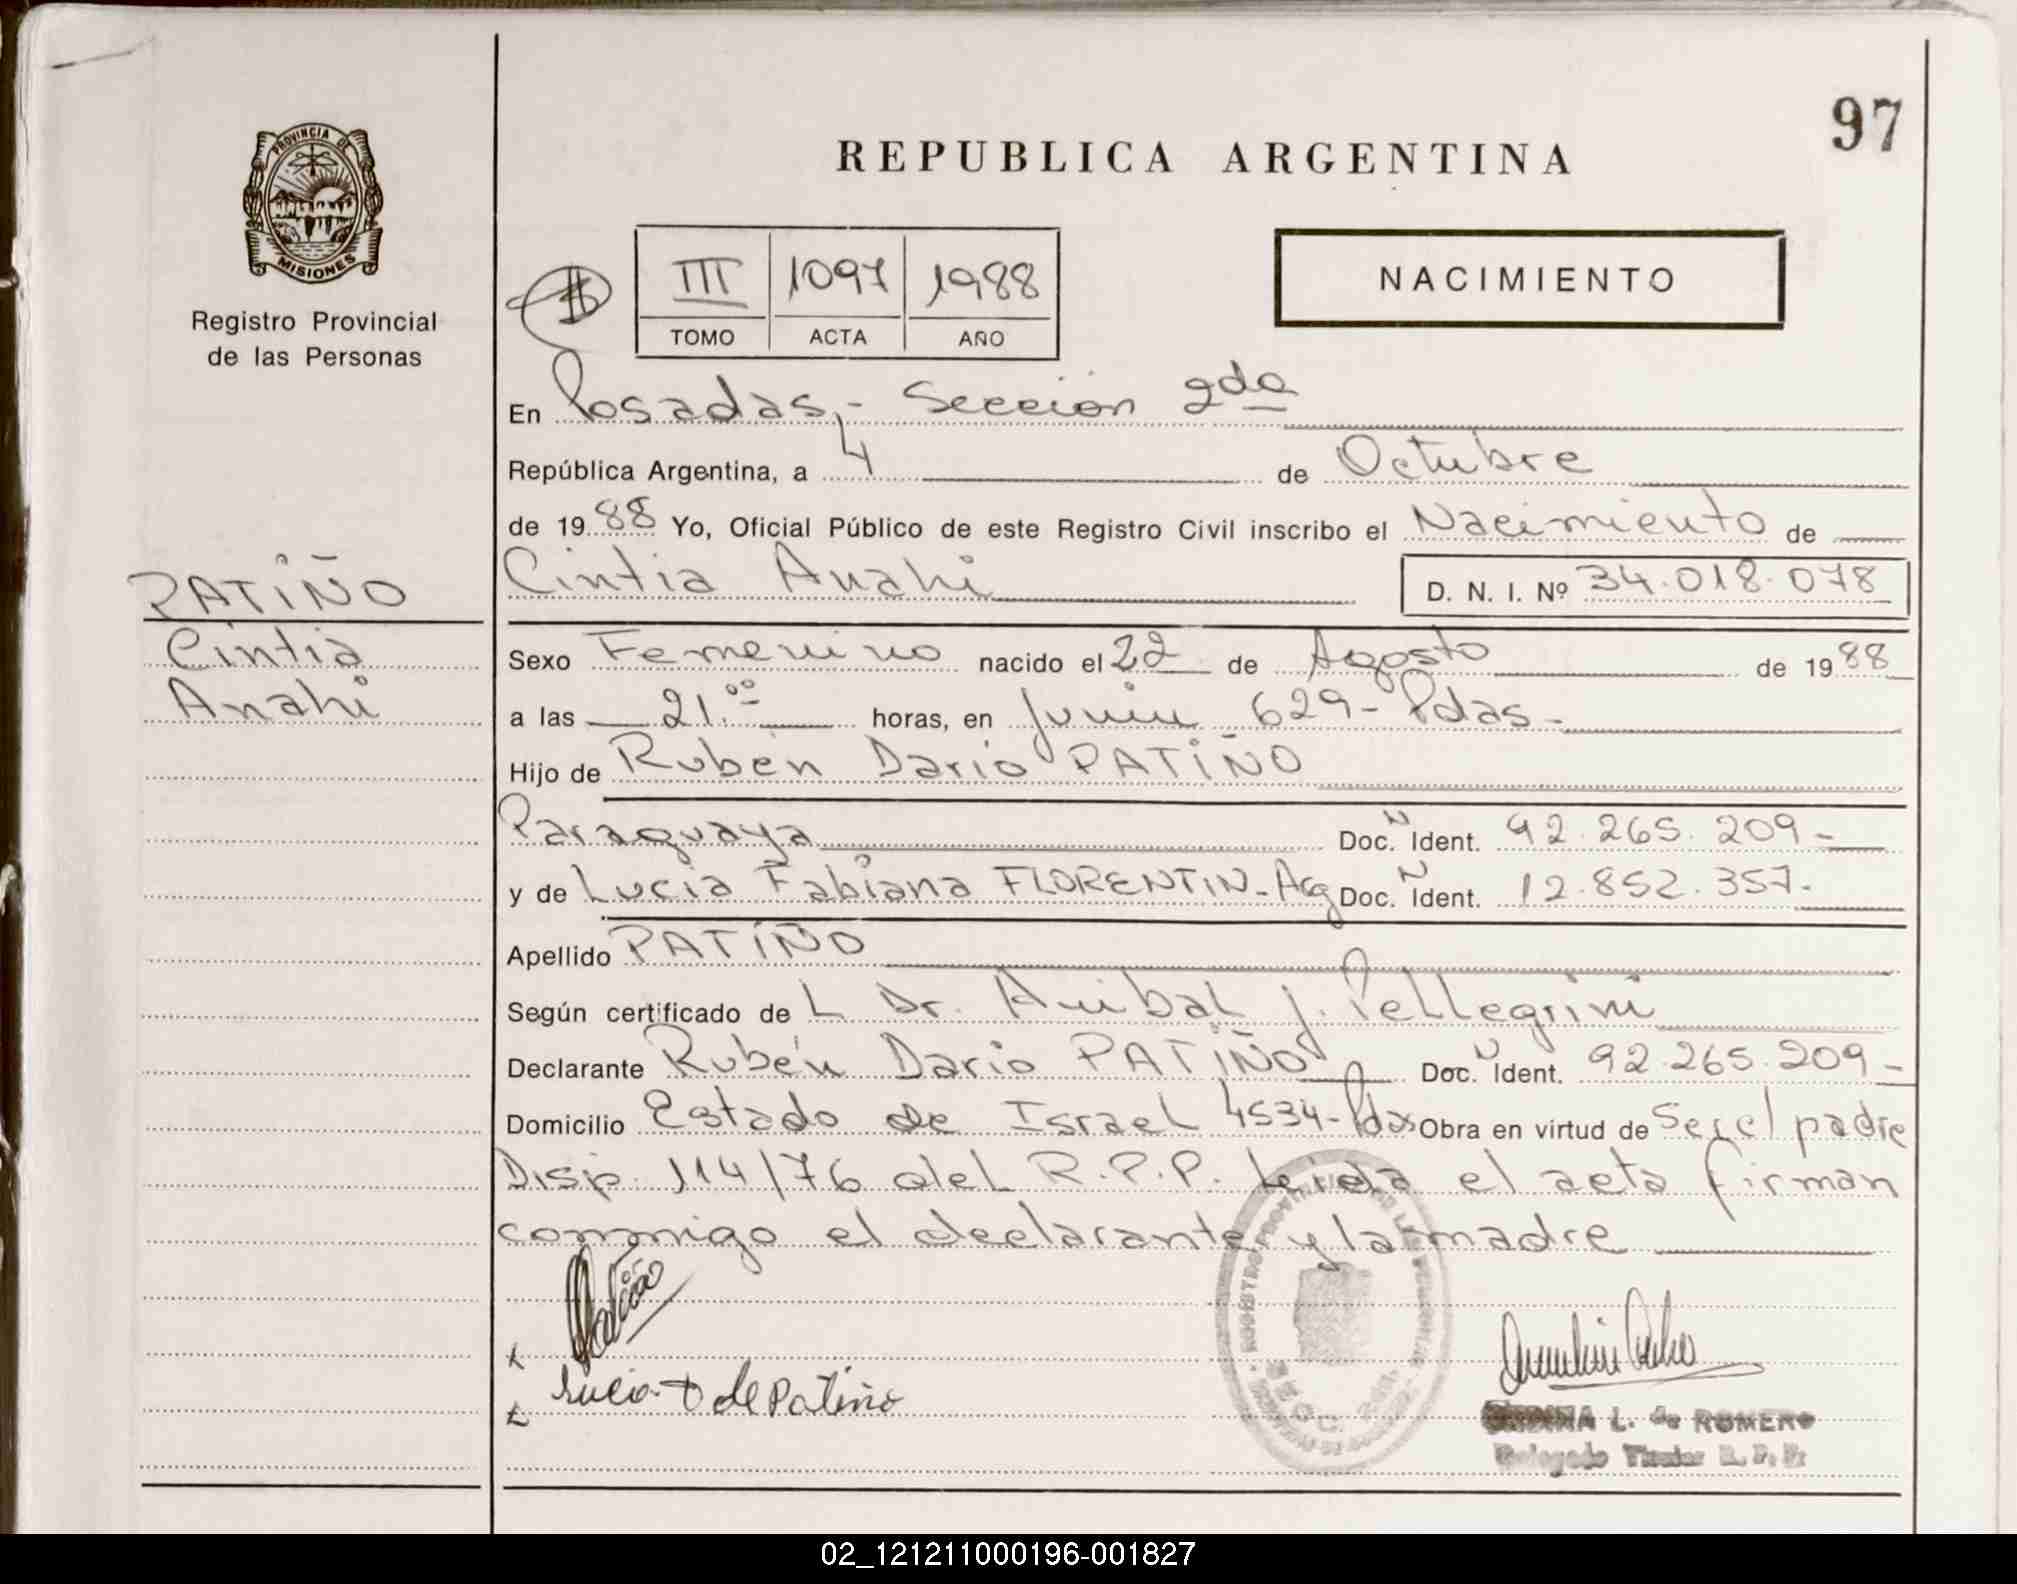 97
PROVINCIA DE
MISIONES
Registro Provincial
de las Personas
REPUBLICA ARGENTINA
III 1097 1988
TOMO ACTA AÑO
NACIMIENTO
En Posadas,- Sección 2da
República Argentina, a 4 de Octubre
de 1988 Yo, Oficial Público de este Registro Civil inscribo el Nacimiento de
Cintia Anahi D. N. I. Nº 34.018.078
PATIÑO
Cintia
Anahi
Sexo Femenino nacido el 22 de Agosto de 1988
a las 21.00 horas, en Junin 629- Pdas-
Hijo de Rubén Dario PATIÑO
Paraguaya Doc. N Ident. 92.265.209-
y de Lucia Fabiana FLORENTIN-Arg Doc. N Ident. 12.852.357-
Apellido PATIÑO
Según certificado de L Dr. Anibal J. Pellegrini
Declarante Rubén Dario PATIÑO Doc. N Ident. 92.265.209-
Domicilio Estado de Israel 4534-Pdas Obra en virtud de Ser el padre
Disp. 114/76 del R.P.P. Leida el acta firman
conmigo el declarante y la madre
Patiño
Lucia de Patiño
L. de ROMERO
Delegado Titular R. P. P.
02_121211000196-001827